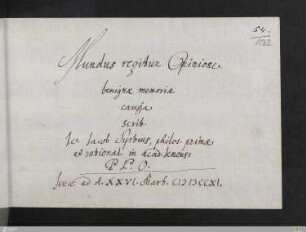 54.
192
Mundus regitur Opinione.
benignæ memoriæ
caussa
scrib.
Io. Jacob Syrbius, philos. primæ
et rational. in acad. Ienens.
P. P. O.
Ienæ ad d. XXVI. Mart. CIƆIƆCCXI.